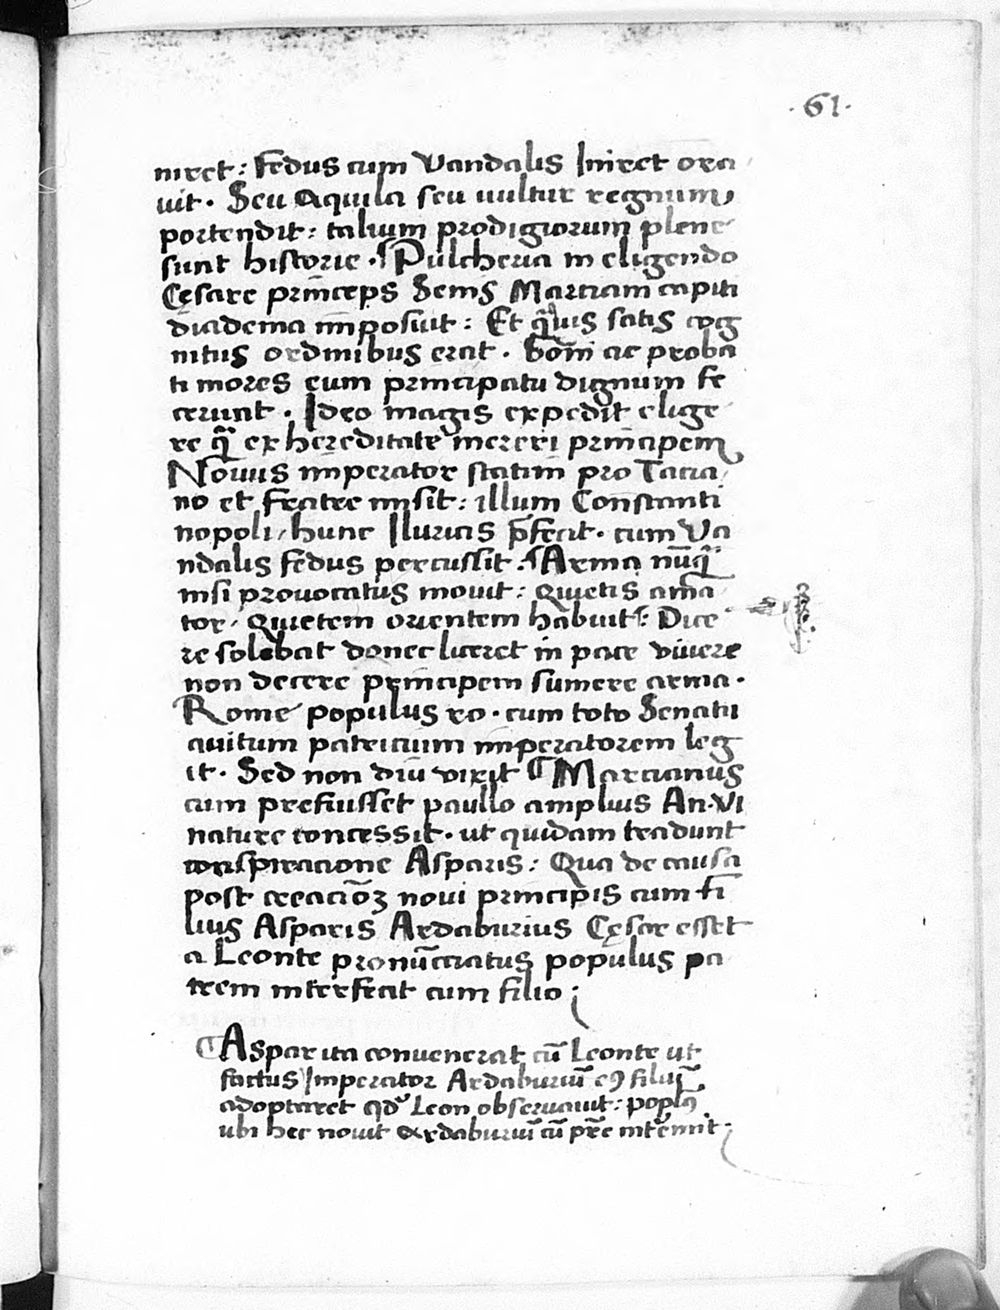 ·61·
niret: Fedus cum Vandalis Iniret ora
uit. Seu Aquila seu uultur regnum,
portendit: talium prodigiorum plene
sunt historie. ¶Pulcheria in eligendo
Cęsare princeps Semꝰ Marciam capiti
diadema imposuit: Et q̃uis satis cog
nitus ordinibus erat. bom̄ ac proba
ti mores eum principatu dignum fe
cerunt. Ideo magis expedit elige
re q̃ ex hereditate mereri principem
Nouus imperator statim pro Tacia
no et fratre misit: illum Constanti
nopoli, hunc Iluricis p̄fecit. cum Va
ndalis fedus percussit. ¶Arma nūq̃
nisi prouocatus mouit: Quietis ama
tor, Quietem orientem habuit: Dice
re solebat donec liceret in pace viuere
non decere principem sumere arma.
Rome populus ro. cum toto Senatu
auitum patricium imperatorem leg
it. Sed non diu vixit ¶Marcianus
cum prefuisset paullo amplius An. VI
nature concessit. ut quidam tradunt
conspiracione Asparis: Qua de causa
post creaciōꝫ noui principis cum fi
lius Asparis Ardaburius Cęsar esset
a Leonte pronūciatus populus pa
trem interfecit cum filio;
¶Aspar ita conuenerat cū Leonte ut
factus Imperator Ardaburiū eꝰ filiū
adoptaret qd̾ Leon obseruauit: popłꝰ
ubi hec nouit Ardaburiū cū pr̄e intēmit.